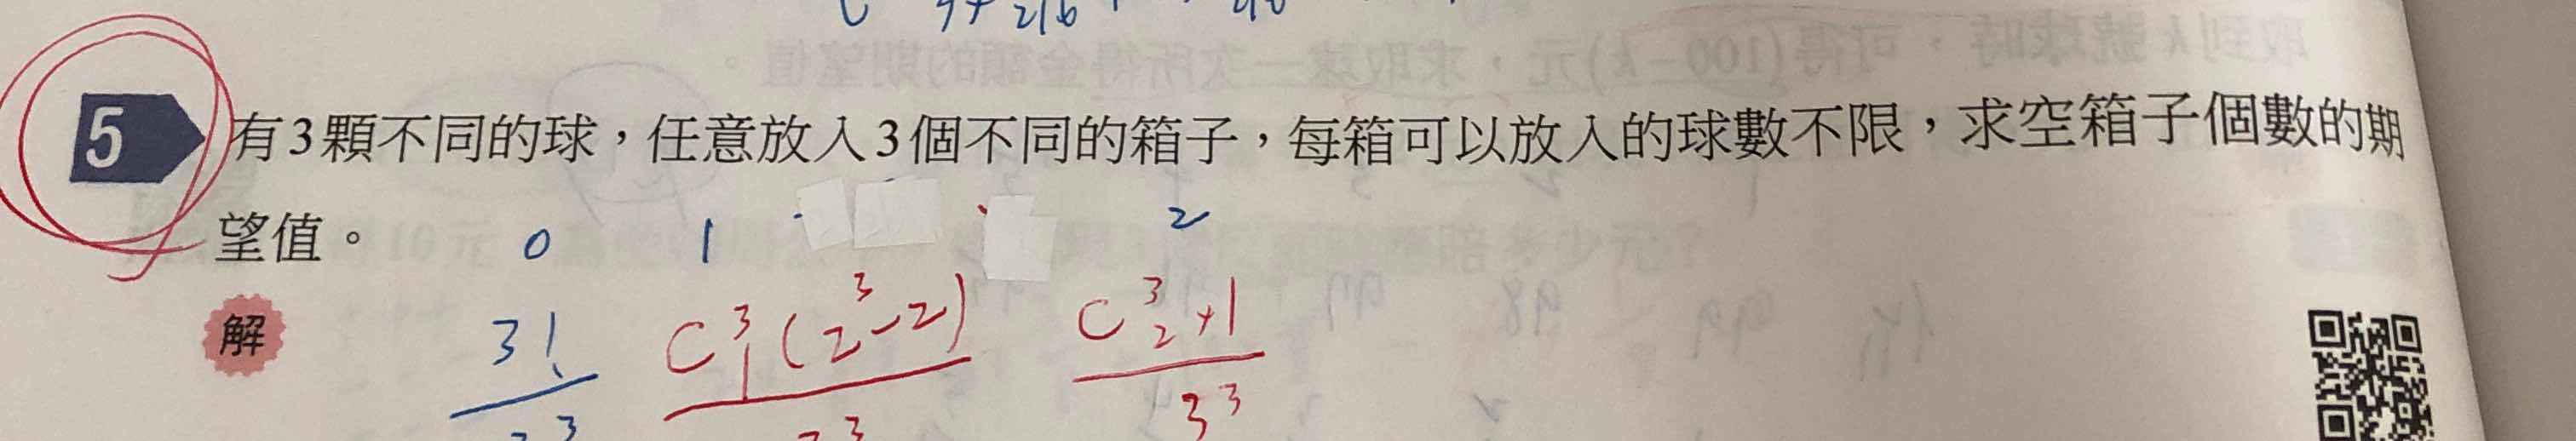 5 有3顆不同的球，任意放入3個不同的箱子，每箱可以放入的球數不限，求空箱子個數的期
望值。
0 1 2
解
3! C³₁(2³-2) C³₂×1
3³ 3³ 3³